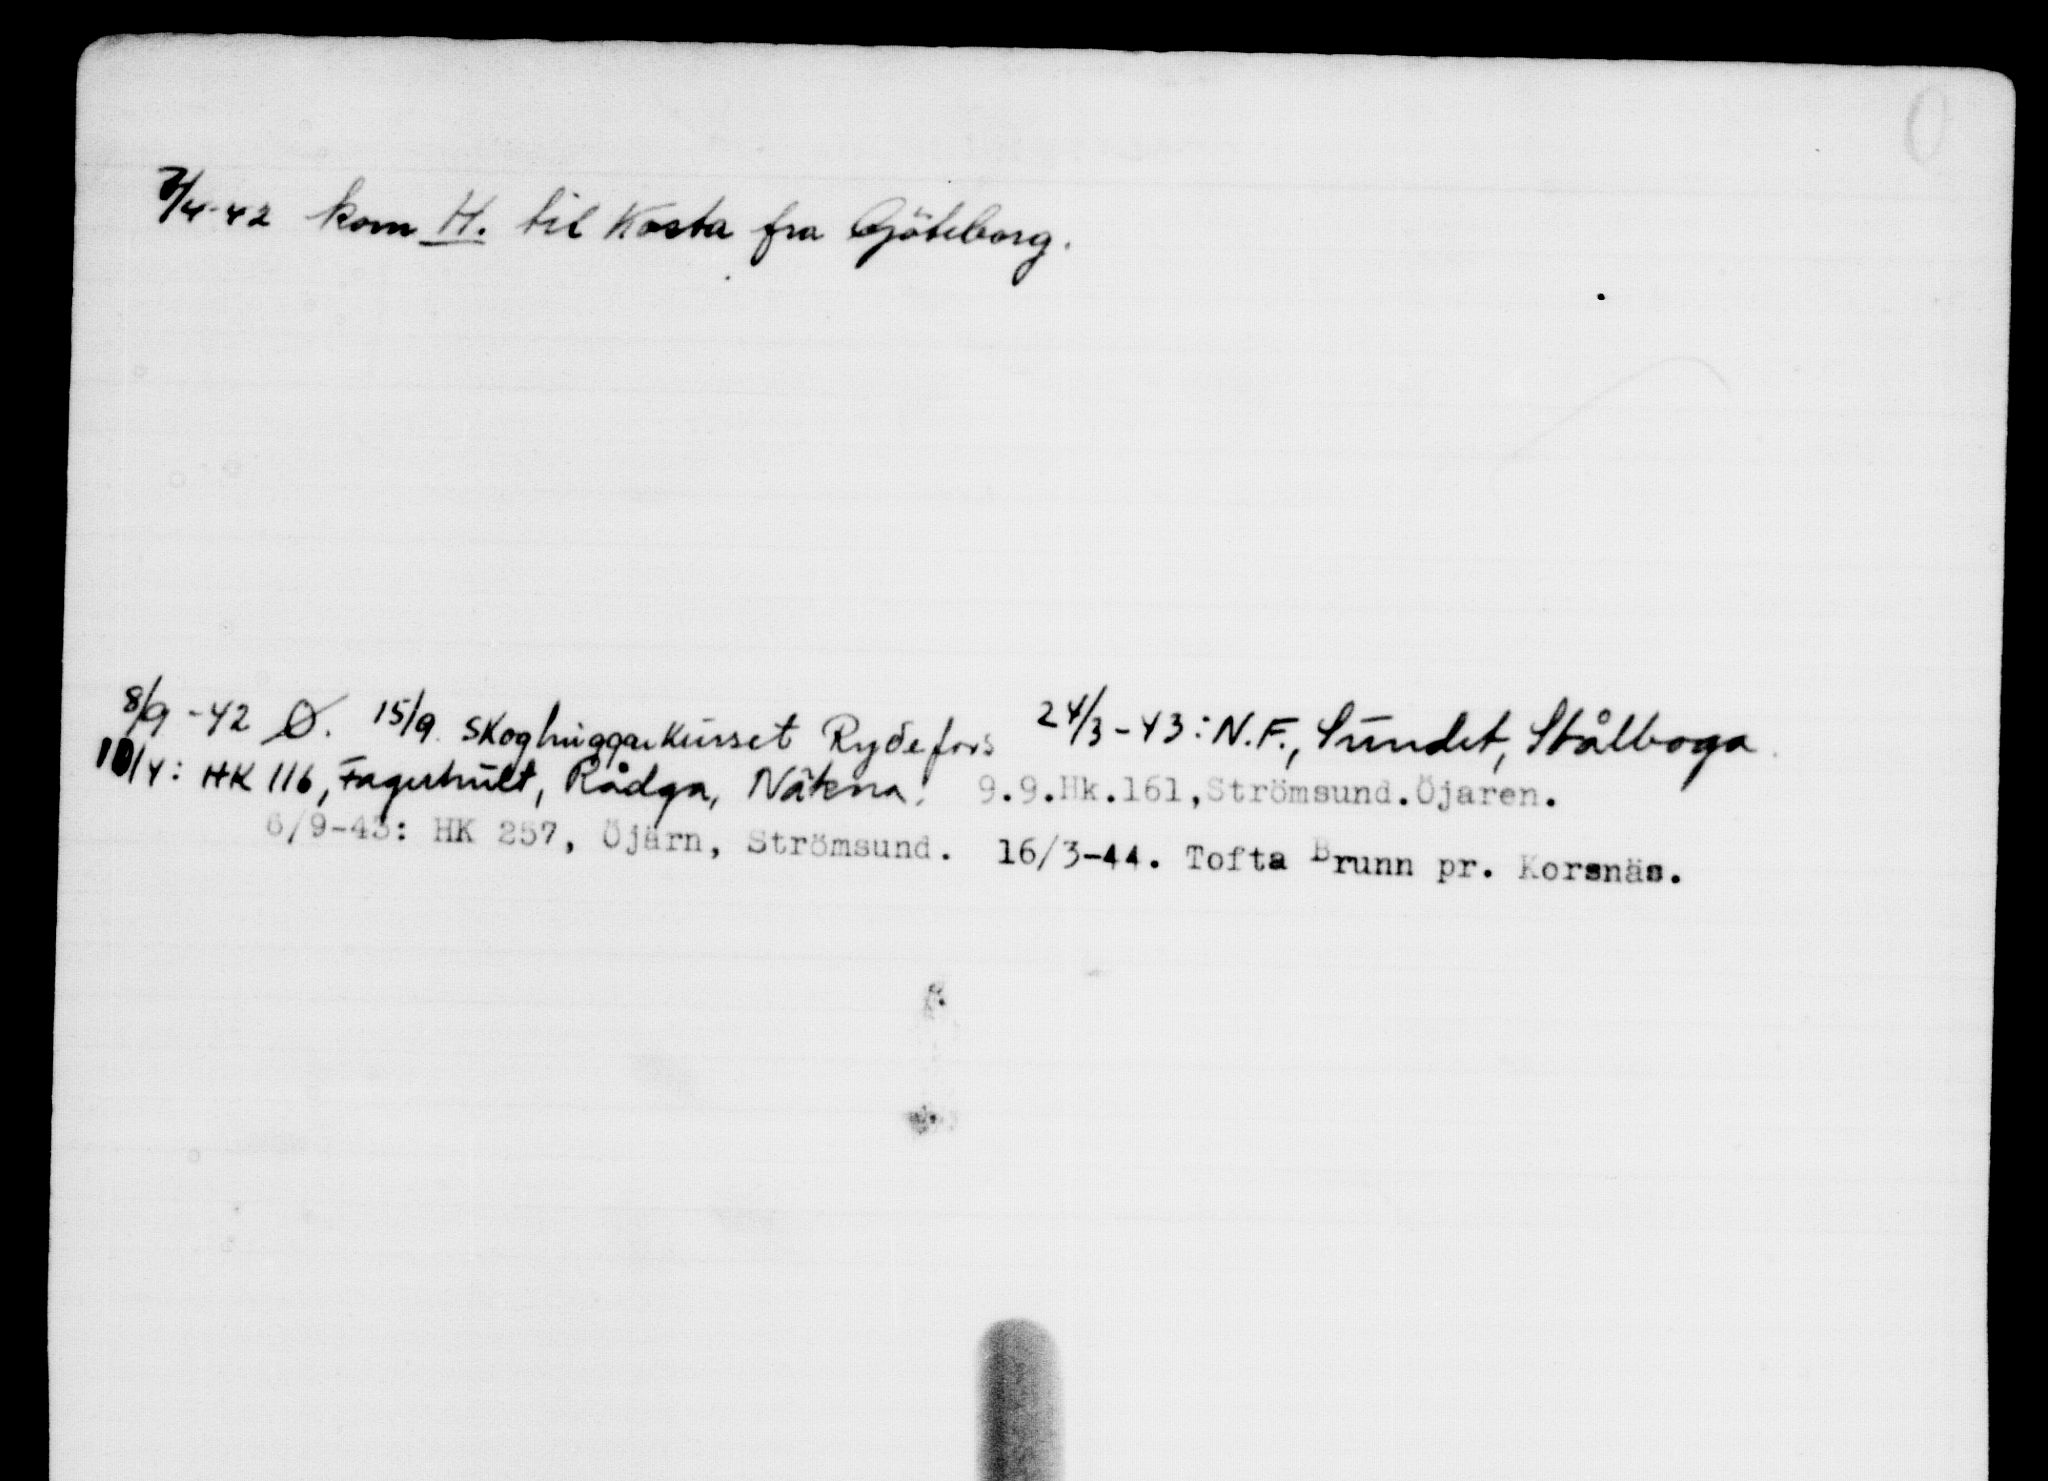 7/4-42 kom H. til Kosta fra Göteborg.
8/9-42 Ø. 15/9 Skoghuggarkurset Rydefors 24/3-43: N.F., Sundet, Stålboga.
10/4: HK 116, Fagerhult, Rådga, Nätena. 9.9.Hk.161,Strömsund.Öjaren.
6/9-43: HK 257, Öjärn, Strömsund. 16/3-44. Tofta Brunn pr. Korsnäs.